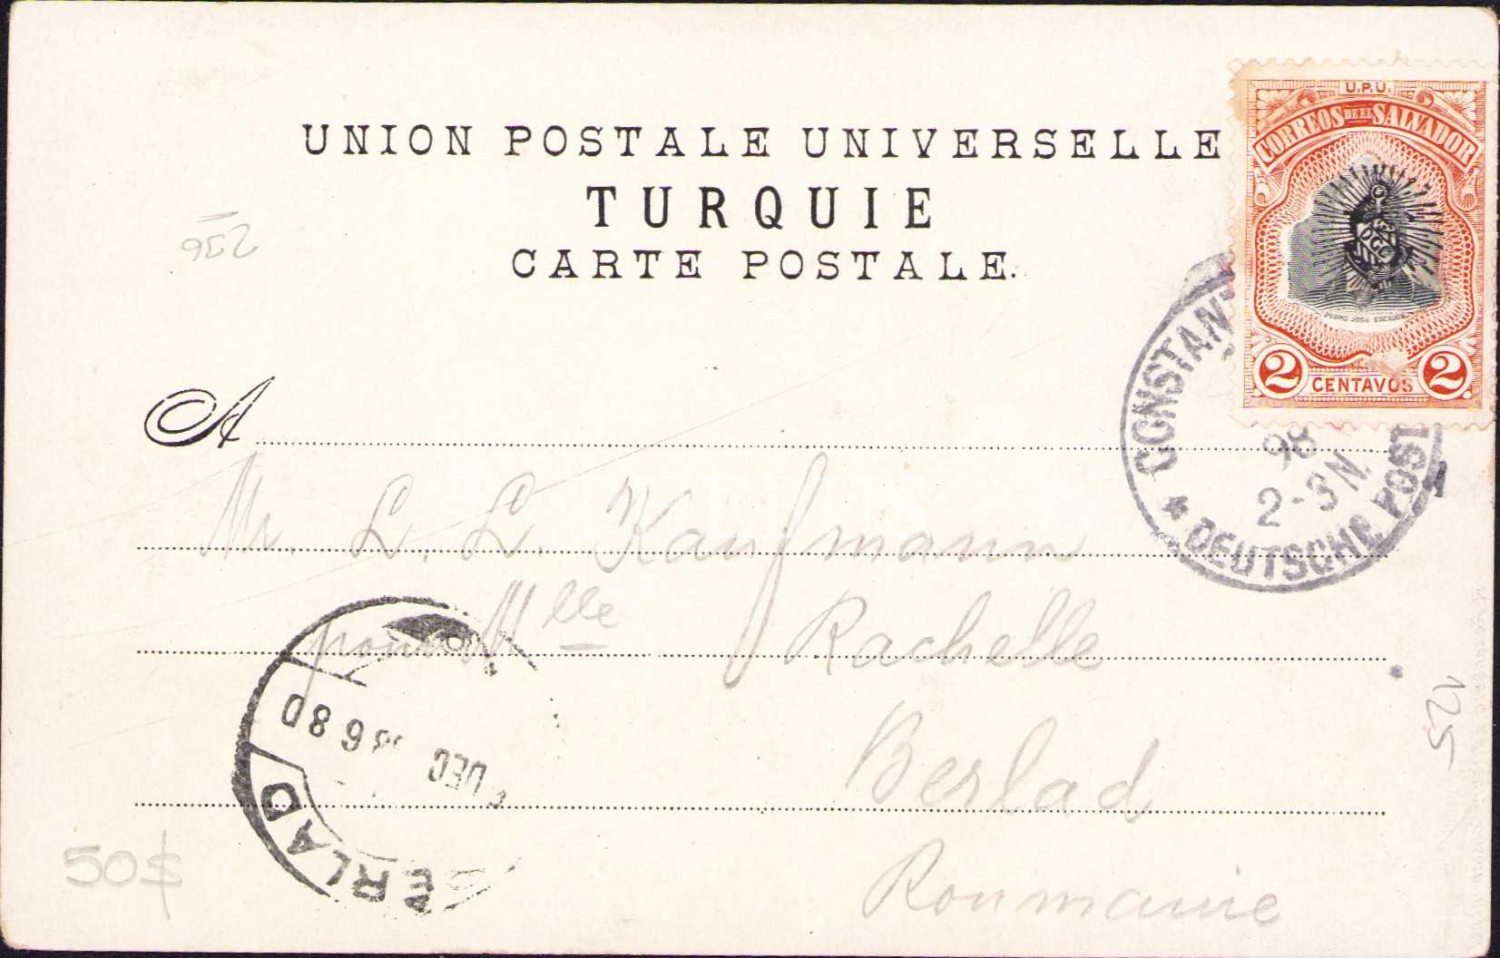 UNION POSTALE UNIVERSELLE
TURQUIE
CARTE POSTALE.
U.P.U.
CORREOS DE EL SALVADOR
2 CENTAVOS 2
952
A
CONSTAN
98
2-3 N.
* DEUTSCHE POST
Mr. L. L. Kaufmann
pour Mlle Rachelle
Berlad
Roumanie
DEC
BERLAD
125
50$